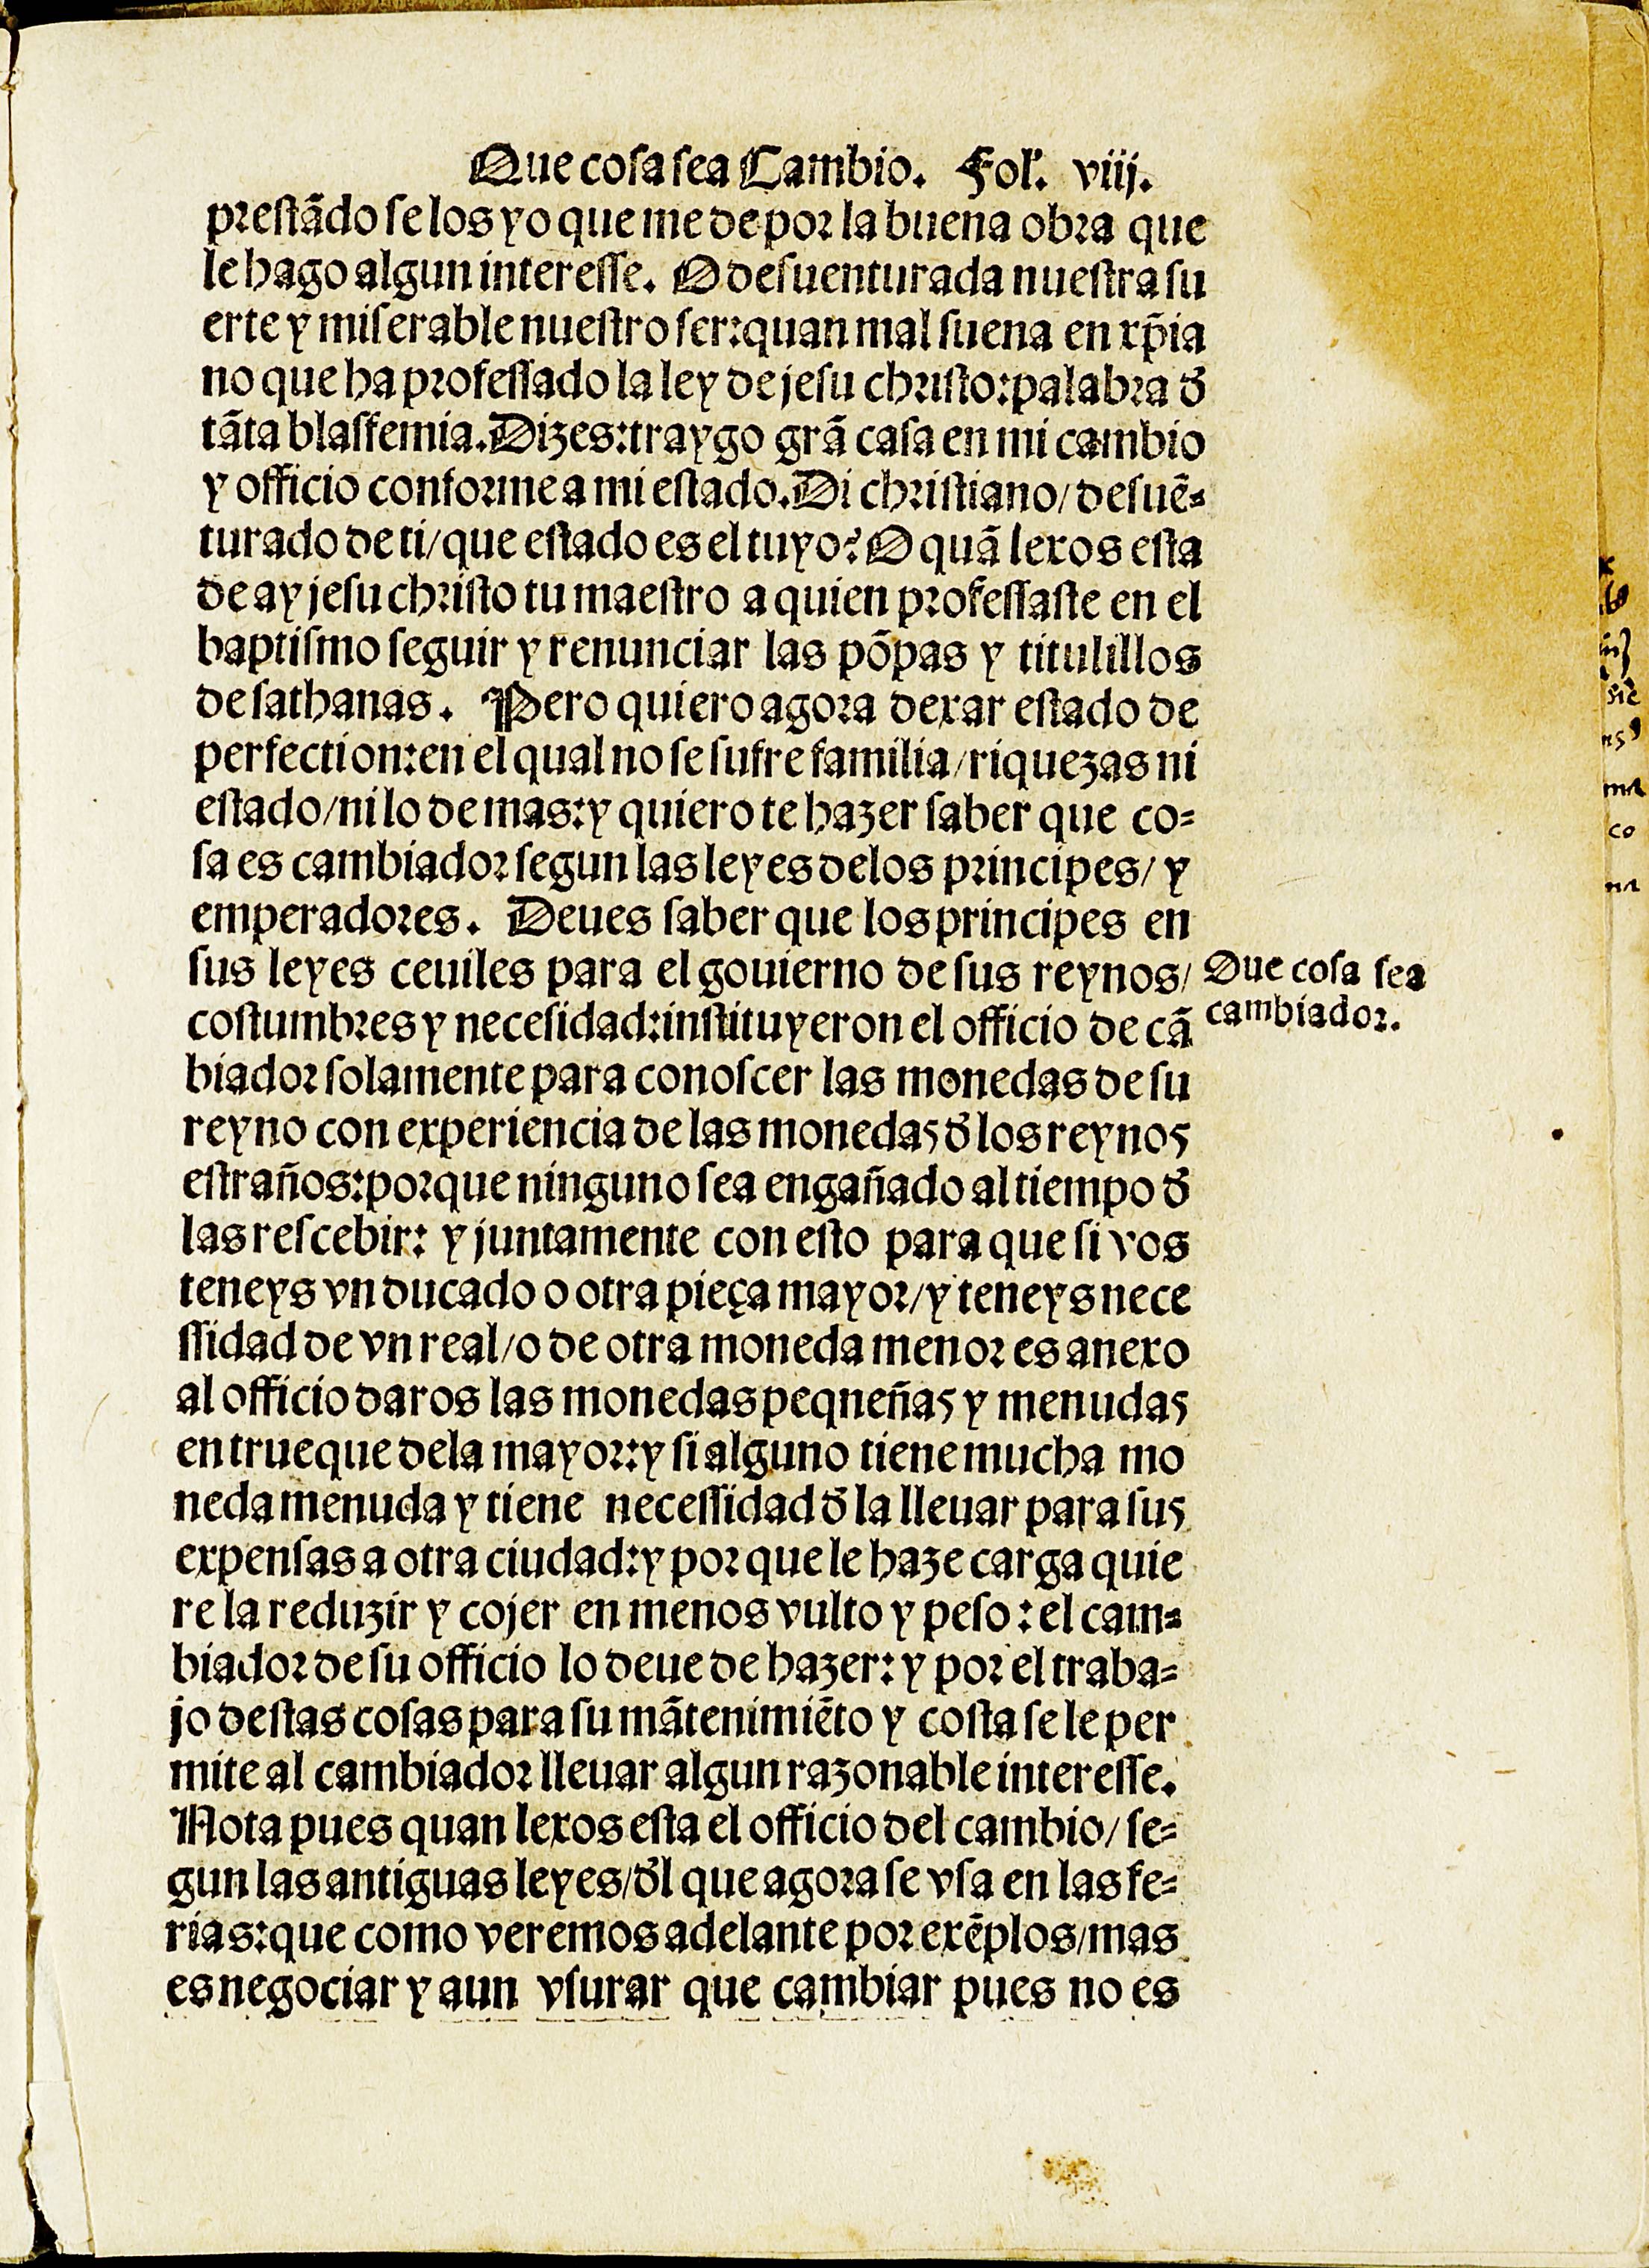 Que cosa sea Cambio. Fol. viij.
prestãdo se los yo que me de por la buena obra que
le hago algun interesse. O desuenturada nuestra su
erte y miserable nuestro ser: quan mal suena en xp̃ia
no que ha professado la ley de jesu christo: palabra d̃
tãta blasfemia. Dizes: traygo grã casa en mi cambio
y officio conforme a mi estado. Di christiano/ desuẽ-
turado de ti/ que estado es el tuyo? O quã lexos esta
de ay jesu christo tu maestro a quien professaste en el
baptismo seguir y renunciar las põpas y titulillos
de sathanas. Pero quiero agora dexar estado de
perfection: en el qual no se sufre familia/ riquezas ni
estado/ ni lo de mas: y quiero te hazer saber que co-
sa es cambiador segun las leyes delos principes/ y
emperadores. Deues saber que los principes en
sus leyes ceuiles para el gouierno de sus reynos/
Que cosa sea
cambiador.
costumbres y necesidad: instituyeron el officio de cã
biador solamente para conoscer las monedas de su
reyno con experiencia de las monedas d̃ los reynos
estraños: porque ninguno sea engañado al tiempo d̃
las rescebir: y juntamente con esto para que si vos
teneys vn ducado o otra pieça mayor/ y teneys nece
ssidad de vn real/ o de otra moneda menor es anexo
al officio daros las monedas peqneñas y menudas
en trueque dela mayor: y si alguno tiene mucha mo
neda menuda y tiene necessidad d̃ la lleuar para sus
expensas a otra ciudad: y por que le haze carga quie
re la reduzir y cojer en menos vulto y peso: el cam-
biador de su officio lo deue de hazer: y por el traba-
jo destas cosas para su mãtenimiẽto y costa se le per
mite al cambiador lleuar algun razonable interesse.
Nota pues quan lexos esta el officio del cambio/ se-
gun las antiguas leyes/ d̃l que agora se vsa en las fe-
rias: que como veremos adelante por exẽplos/ mas
es negociar y aun vsurar que cambiar pues no es